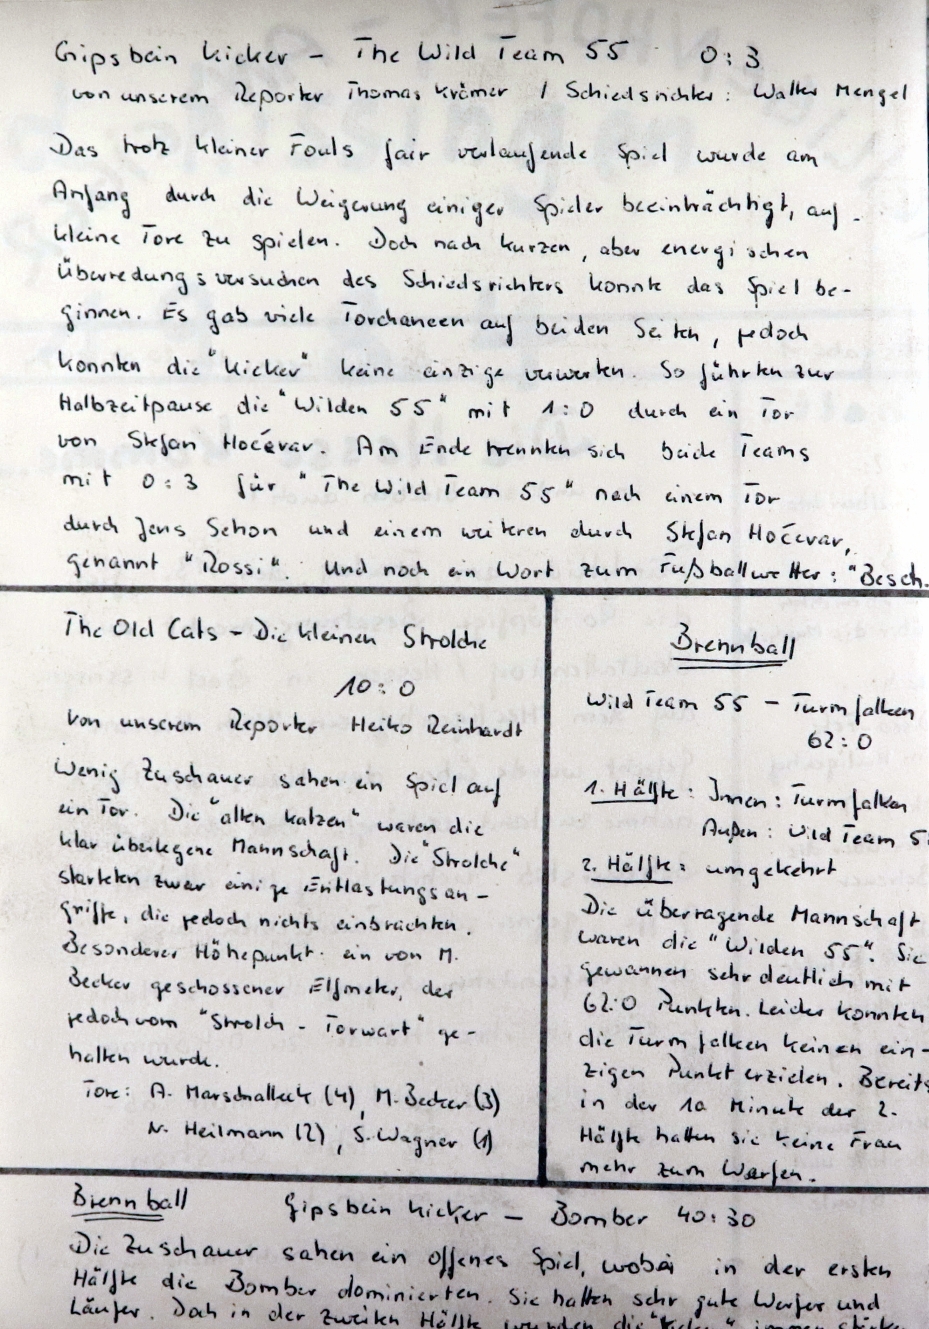 Gipsbein Kicker - The Wild Team 55 0:3
von unserem Reporter Thomas Krämer / Schiedsrichter: Walter Mengel
Das trotz kleiner Fouls fair verlaufende Spiel wurde am
Anfang durch die Weigerung einiger Spieler beeinträchtigt, auf
kleine Tore zu spielen. Doch nach kurzen, aber energischen
Überredungsversuchen des Schiedsrichters konnte das Spiel be-
ginnen. Es gab viele Torchancen auf beiden Seiten, jedoch
konnten die "Kicker" keine einzige verwerten. So führten zur
Halbzeitpause die "Wilden 55" mit 1:0 durch ein Tor
von Stefan Hočevar. Am Ende trennten sich beide Teams
mit 0:3 für "The Wild Team 55" nach einem Tor
durch Jens Schon und einem weiteren durch Stefan Hočevar,
genannt "Rossi". Und noch ein Wort zum Fußballwetter: "Besch.
The Old Cats - Die kleinen Strolche
10:0
von unserem Reporter Heiko Reinhardt
Wenig Zuschauer sahen ein Spiel auf
ein Tor. Die "alten Katzen" waren die
klar überlegene Mannschaft. Die "Strolche"
starteten zwar einige Entlastungsan-
griffe, die jedoch nichts einbrachten.
Besonderer Höhepunkt: ein von M.
Becker geschossener Elfmeter, der
jedoch vom "Strolch-Torwart" ge-
halten wurde.
Tore: A. Marschalleck (4), M. Becker (3)
N. Heilmann (2), S. Wagner (1)
Brennball
Wild Team 55 - Turmfalken
62:0
1. Hälfte: Innen: Turmfalken
Außen: Wild Team 5
2. Hälfte: umgekehrt
Die überragende Mannschaft
waren die "Wilden 55". Sie
gewannen sehr deutlich mit
62:0 Punkten. Leider konnten
die Turmfalken keinen ein-
zigen Punkt erzielen. Bereits
in der 10 Minute der 2.
Hälfte hatten sie keine Frau
mehr zum Werfen.
Brennball Gipsbein Kicker - Bomber 40:30
Die Zuschauer sahen ein offenes Spiel, wobei in der ersten
Hälfte die Bomber dominierten. Sie hatten sehr gute Werfer und
Läufer. Doch in der zweiten Hälfte wurden die "Kicker" immer